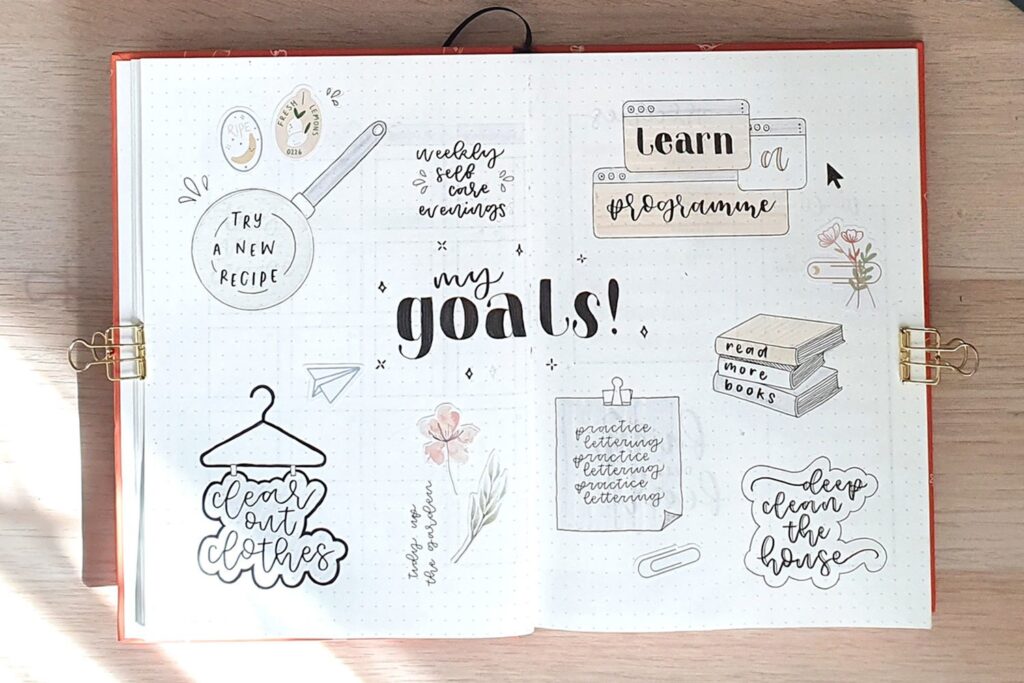 RIPE
FRESH LEMONS
0216
TRY
A NEW
RECIPE
weekly
self
care
evenings
learn
a
programme
my
goals!
read
more
books
clear
out
clothes
tidy up
the garden
practice
lettering
practice
lettering
practice
lettering
deep
clean
the
house